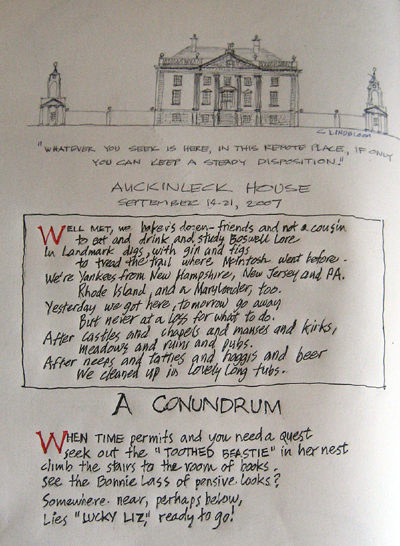 C LINDBLOOM
"WHATEVER YOU SEEK IS HERE, IN THIS REMOTE PLACE, IF ONLY
YOU CAN KEEP A STEADY DISPOSITION."
AUCKINLECK HOUSE
SEPTEMBER 14-21, 2007
WELL MET, we baker's dozen-friends and not a cousin
to eat and drink and study Boswell Lore
In Landmark digs, with gin and figs
to tread the trail where McIntosh went before.
We're Yankees from New Hampshire, New Jersey and PA.
Rhode Island, and a Marylander, too.
Yesterday we got here, tomorrow go away
But never at a loss for what to do.
After castles and chapels and manses and kirks,
meadows and ruins and pubs.
After neeps and tatties and haggis and beer
We cleaned up in Lovely Long tubs.
A CONUNDRUM
WHEN TIME permits and you need a quest
seek out the "TOOTHED BEASTIE" in her nest
climb the stairs to the room of books.
see the Bonnie Lass of pensive looks?
Somewhere near, perhaps below,
Lies "LUCKY LIZ," ready to go!